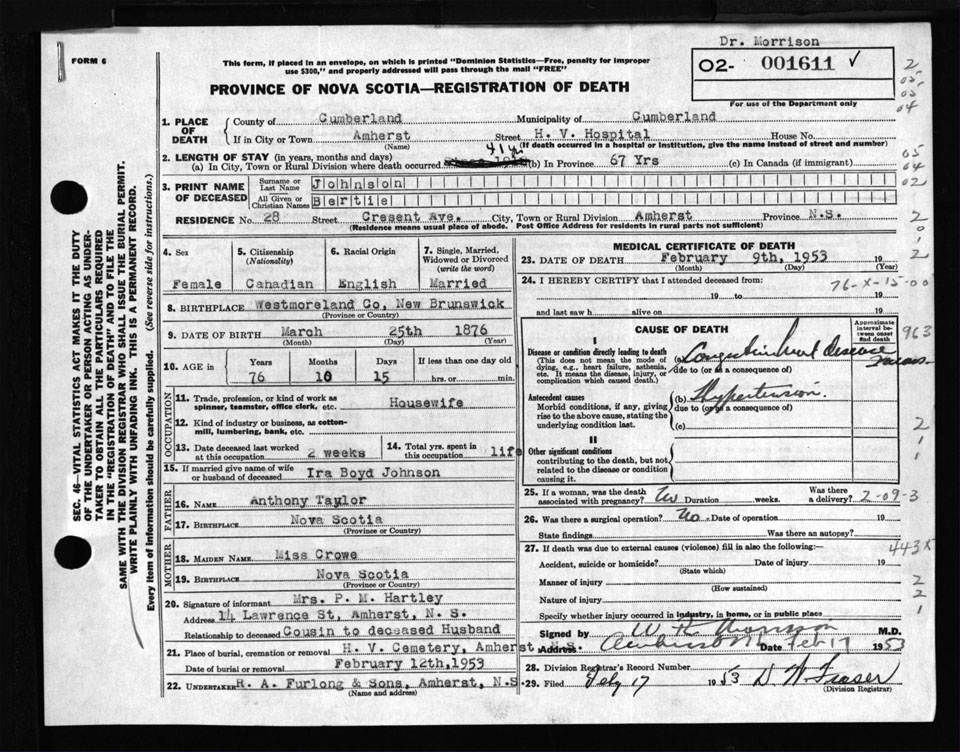 Dr. Morrison
FORM 6
This form, if placed in an envelope, on which is printed "Dominion Statistics—Free, penalty for improper
use $300," and properly addressed will pass through the mail "FREE"
O2- 001611 ✓
For use of the Department only
PROVINCE OF NOVA SCOTIA—REGISTRATION OF DEATH
1. PLACE OF DEATH County of Cumberland Municipality of Cumberland
If in City or Town Amherst Street H. V. Hospital House No.
(Name) (If death occurred in a hospital or institution, give the name instead of street and number)
2. LENGTH OF STAY (in years, months and days)
(a) In City, Town or Rural Division where death occurred 41 yrs (b) In Province 67 Yrs (c) In Canada (if immigrant)
3. PRINT NAME OF DECEASED Surname or Last Name Johnson
All Given or Christian Names Bertie
RESIDENCE No. 28 Street Cresent Ave. City, Town or Rural Division Amherst Province N.S.
(Residence means usual place of abode. Post Office Address for residents in rural parts not sufficient)
SEC. 46—VITAL STATISTICS ACT MAKES IT THE DUTY
OF THE UNDERTAKER OR PERSON ACTING AS UNDER-
TAKER TO OBTAIN ALL THE PARTICULARS REQUIRED
IN THE "REGISTRATION OF DEATH" AND TO FILE THE
SAME WITH THE DIVISION REGISTRAR WHO SHALL ISSUE THE BURIAL PERMIT.
WRITE PLAINLY WITH UNFADING INK. THIS IS A PERMANENT RECORD.
Every item of information should be carefully supplied. (See reverse side for instructions.)
4. Sex Female
5. Citizenship (Nationality) Canadian
6. Racial Origin English
7. Single, Married, Widowed or Divorced (write the word) Married
8. BIRTHPLACE Westmoreland Co, New Brunswick
(Province or Country)
9. DATE OF BIRTH March 25th 1876
(Month) (Day) (Year)
10. AGE IN Years Months Days If less than one day old
76 10 15 hrs. or min.
OCCUPATION
11. Trade, profession, or kind of work as spinner, teamster, office clerk, etc. Housewife
12. Kind of industry or business, as cotton-mill, lumbering, bank, etc.
13. Date deceased last worked at this occupation 2 weeks
14. Total yrs. spent in this occupation life
15. If married give name of wife or husband of deceased Ira Boyd Johnson
FATHER
16. NAME Anthony Taylor
17. BIRTHPLACE Nova Scotia
(Province or Country)
MOTHER
18. MAIDEN NAME Miss Crowe
19. BIRTHPLACE Nova Scotia
(Province or Country)
20. Signature of informant Mrs. P. M. Hartley
Address 14 Lawrence St, Amherst, N. S.
Relationship to deceased Cousin to deceased Husband
21. Place of burial, cremation or removal H. V. Cemetery, Amherst, N. S.
Date of burial or removal February 12th, 1953
22. UNDERTAKER R. A. Furlong & Sons, Amherst, N.S
(Name and address)
MEDICAL CERTIFICATE OF DEATH
23. DATE OF DEATH February 9th, 1953 19
(Month) (Day) (Year)
24. I HEREBY CERTIFY that I attended deceased from:
76-X-15-00
19 to 19
and last saw h alive on 19
CAUSE OF DEATH
Approximate interval between onset and death
963
I
Disease or condition directly leading to death
(This does not mean the mode of dying, e.g., heart failure, asthenia, etc. It means the disease, injury, or complication which caused death.)
(a) heart disease
due to (or as a consequence of)
Antecedent causes
Morbid conditions, if any, giving rise to the above cause, stating the underlying condition last.
(b) Hypertension.
due to (or as a consequence of)
(c)
II
Other significant conditions
contributing to the death, but not related to the disease or condition causing it.
25. If a woman, was the death associated with pregnancy? No Duration weeks. Was there a delivery? 2-09-3
26. Was there a surgical operation? No. Date of operation 19
State findings Was there an autopsy?
27. If death was due to external causes (violence) fill in also the following:— 443X
Accident, suicide or homicide? Date of injury 19
(State which)
Manner of injury
(How sustained)
Nature of injury
Specify whether injury occurred in industry, in home, or in public place
Signed by M.D.
Address Date Feb 17 1953
28. Division Registrar's Record Number
29. Filed Feby 17 1953 D W Fraser
(Division Registrar)